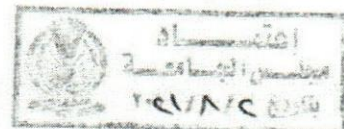 اعتمـــــاد
مجلس الجامعـــة
بتاريخ ٢٠٢١/٨/٢